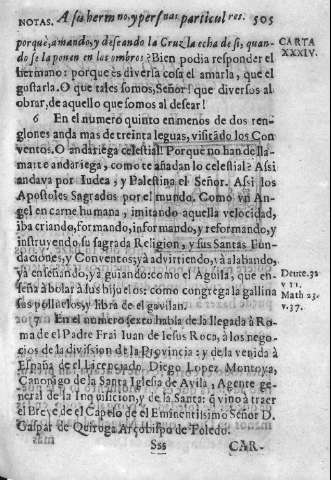 NOTAS. A su hermano, y personas particulares. 505
porquè, amando, y deseando la Cruz la echa de si, quan-
do se la ponen en los ombros? Bien podia responder el
hermano: porque es diversa cosa el amarla, que el
gustarla. O que tales somos, Señor! que diversos al
obrar, de aquello que somos al desear!
CARTA
XXXIV.
6 En el numero quinto en menos de dos ren-
glones anda mas de treinta leguas, visitãdo los Con
ventos. O andariega celestial! Porque no han de lla-
marte andariega, como te añadan lo celestial? Assi
andava por Iudea, y Palestina el Señor. Assi los
Apostoles Sagrados por el mundo. Como vn An
gel en carne humana, imitando aquella velocidad,
iba criando, formando, informando, y reformando, y
instruyendo su sagrada Religion, y sus Santas Fun-
daciones, y Conventos; yà advirtiendo, yà alabando,
yà enseñando, yà guiando: como el Aguila, que en-
seña à bolar à sus hijuelos: como congrega la gallina
sus polluelos, y libra de el gavilan.
Deute. 32
v 11.
Math 23.
v. 37.
7 En el numero sexto habla de la llegada à Ro
ma de el Padre Frai Iuan de Iesus Roca, à los nego-
cios de la division de la Provincia: y de la venida à
España de el Licenciado Diego Lopez Montoya,
Canonigo de la Santa Iglesia de Avila, Agente ge-
neral de la Inquisicion, y de la Santa: q vino à traer
el Breve de el Capelo de el Eminentissimo Señor D.
Gaspar de Quiroga Arçobispo de Toledo.
Sss CAR-